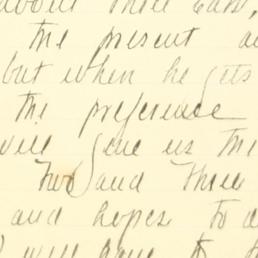 about three
the present
but when he gets
the preference
will give us the
Two and three
and hopes to
will have to